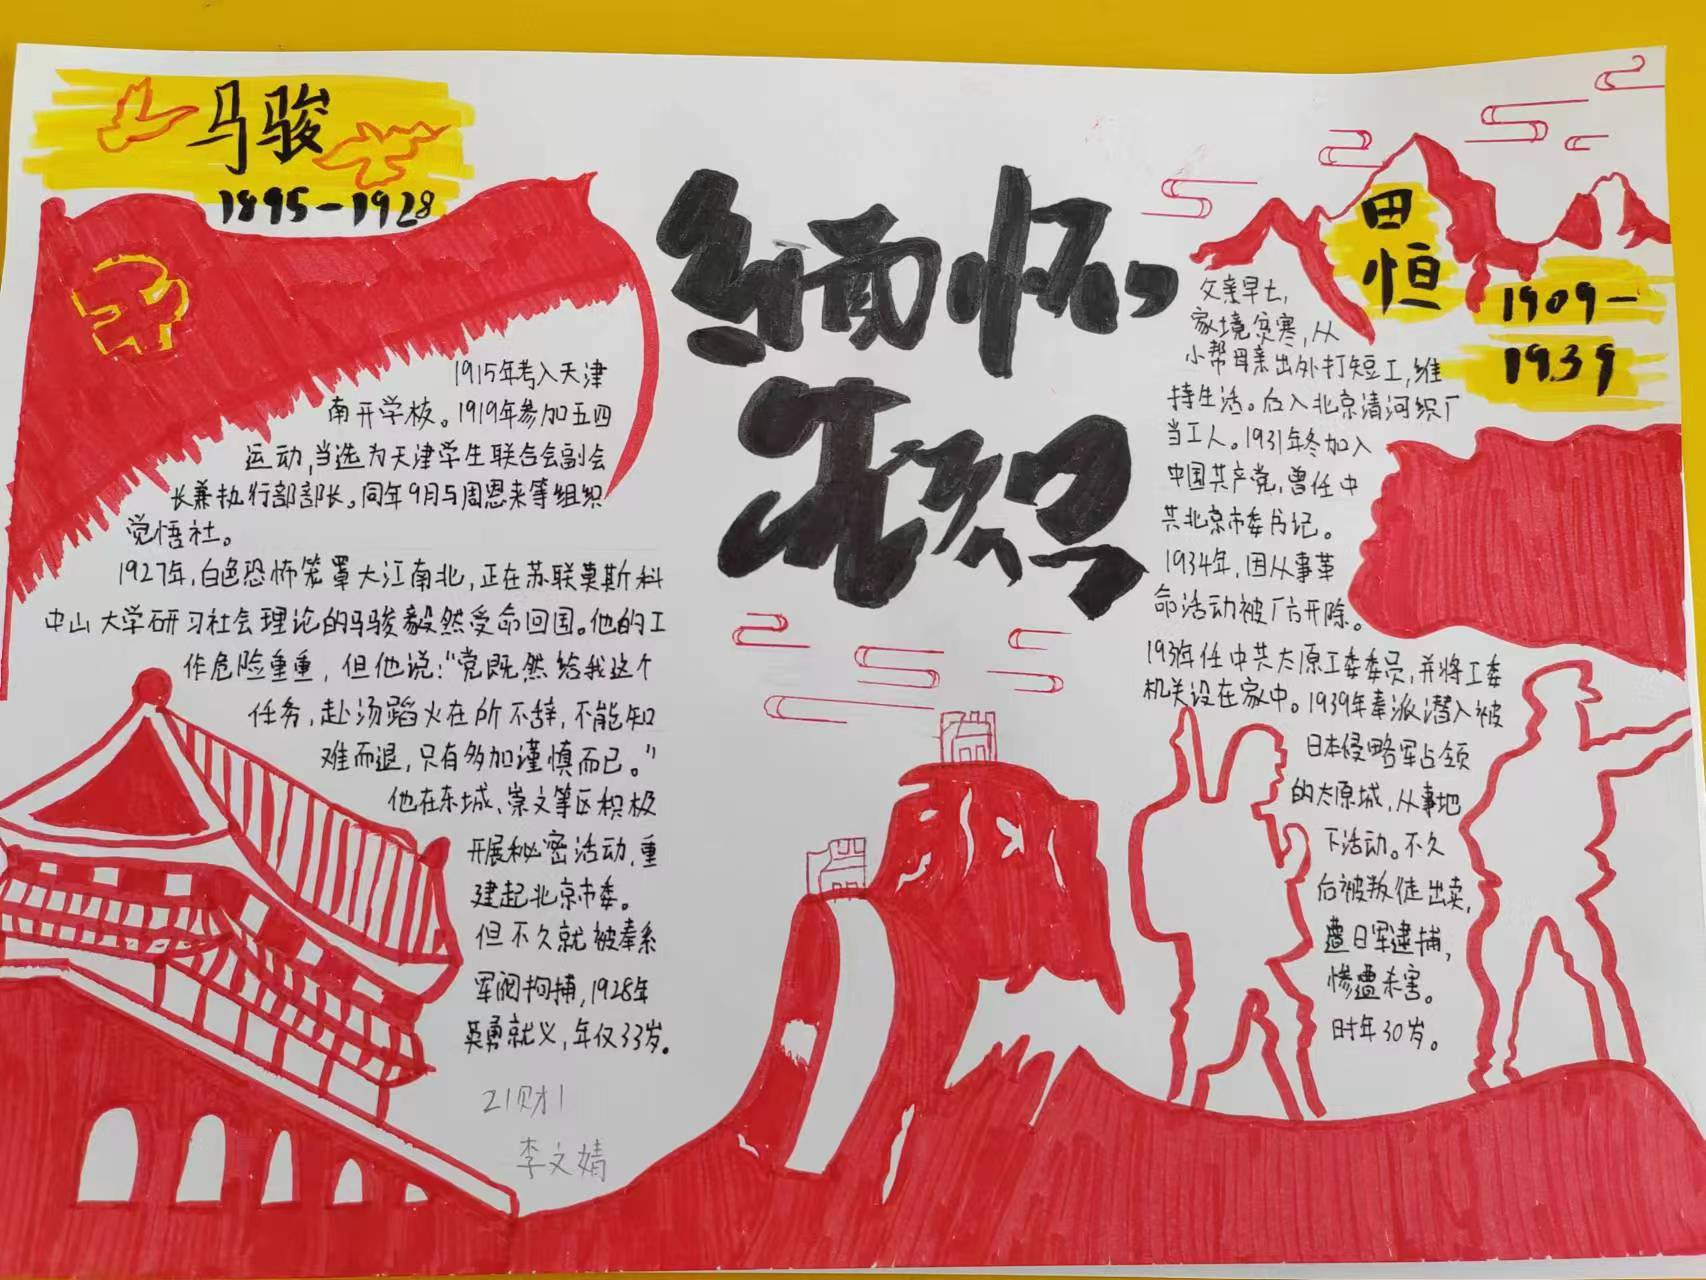 马骏
1895-1928
缅怀
英烈
田
恒
1909-
1939
1915年考入天津
南开学校。1919年参加五四
运动,当选为天津学生联合会副会
长兼执行部部长。同年9月与周恩来等组织
觉悟社。
1927年,白色恐怖笼罩大江南北,正在苏联莫斯科
中山大学研习社会理论的马骏毅然受命回国。他的工
作危险重重,但他说:“党既然给我这个
任务,赴汤蹈火在所不辞,不能知
难而退,只有多加谨慎而已。”
他在东城、崇文等区积极
开展秘密活动,重
建起北京市委。
但不久就被奉系
军阀拘捕,1928年
英勇就义,年仅33岁。
21财1
李文婧
父亲早亡,
家境贫寒,从
小帮母亲出外打短工,维
持生活。后入北京清河织厂
当工人。1931年冬加入
中国共产党,曾任中
共北京市委书记。
1934年,因从事革
命活动被厂方开除。
年任中共太原工委委员,并将工委
机关设在家中。1939年奉派潜入被
日本侵略军占领
的太原城,从事地
下活动。不久
后被叛徒出卖,
遭日军逮捕,
惨遭杀害。
时年30岁。